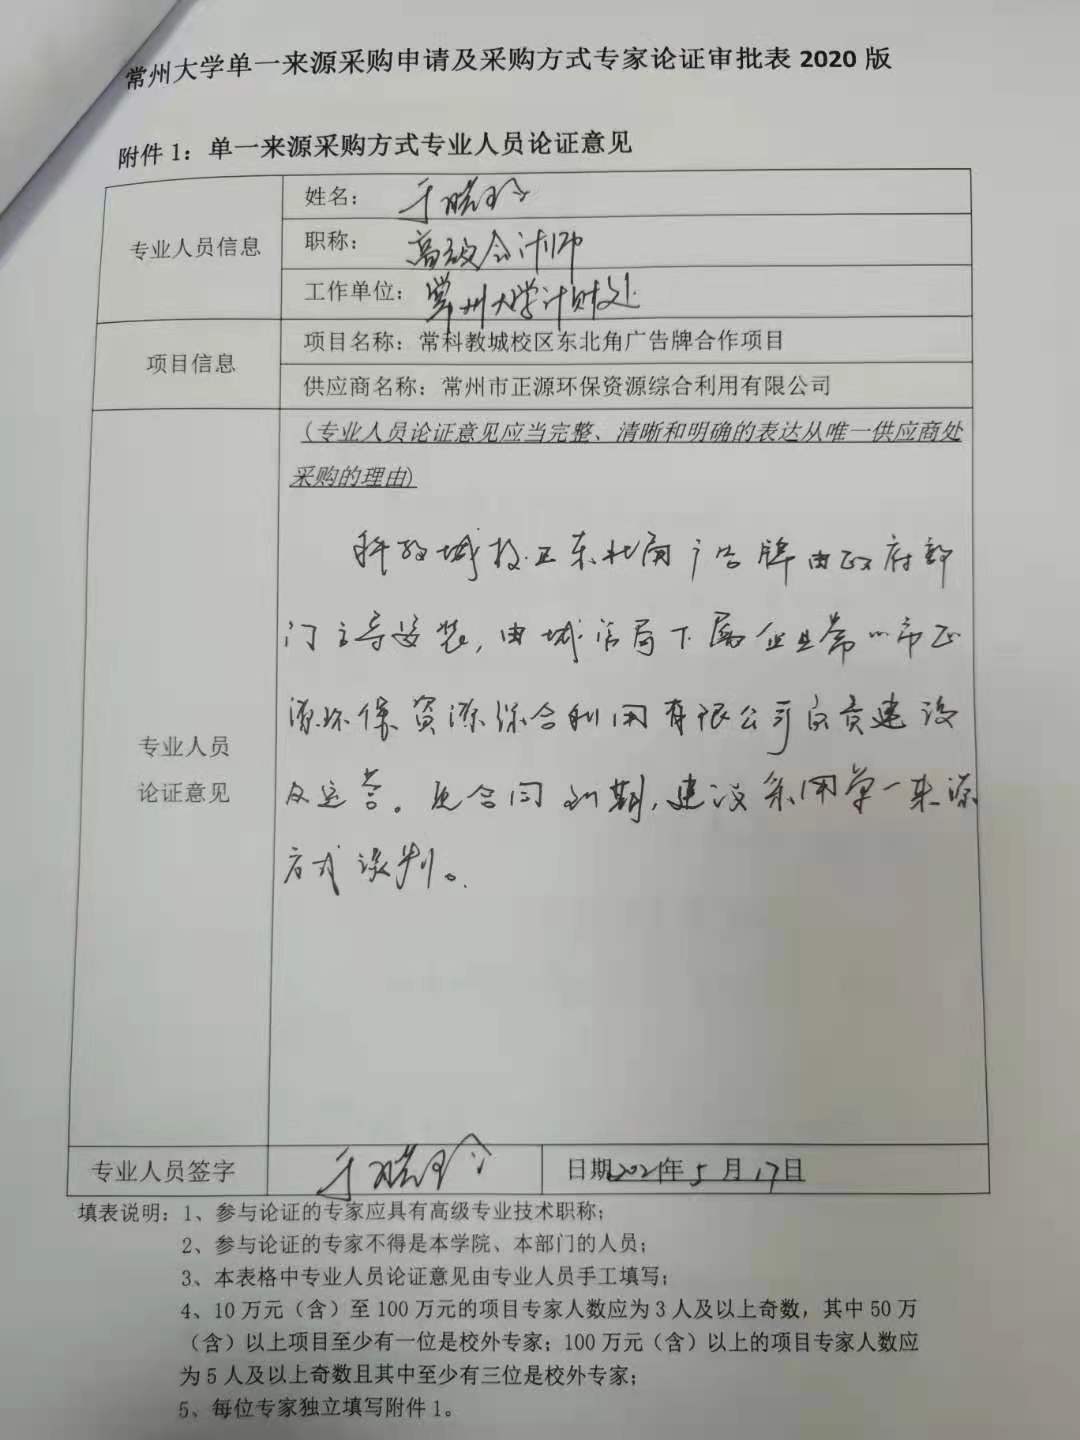 常州大学单一来源采购申请及采购方式专家论证审批表 2020 版
附件 1：单一来源采购方式专业人员论证意见
专业人员信息
姓名：于晓玲
职称：高级会计师
工作单位：常州大学计财处
项目信息
项目名称：常科教城校区东北角广告牌合作项目
供应商名称：常州市正源环保资源综合利用有限公司
专业人员
论证意见
(专业人员论证意见应当完整、清晰和明确的表达从唯一供应商处
采购的理由)
科教城校区东北角广告牌由政府部
门主导安装，由城管局下属企业常州市正
源环保资源综合利用有限公司负责建设
及运营。现合同到期，建议采用单一来源
方式谈判。
专业人员签字
于晓玲
日期2021年5月17日
填表说明：1、参与论证的专家应具有高级专业技术职称；
2、参与论证的专家不得是本学院、本部门的人员；
3、本表格中专业人员论证意见由专业人员手工填写；
4、10 万元（含）至 100 万元的项目专家人数应为 3 人及以上奇数，其中 50 万
（含）以上项目至少有一位是校外专家；100 万元（含）以上的项目专家人数应
为 5 人及以上奇数且其中至少有三位是校外专家；
5、每位专家独立填写附件 1。